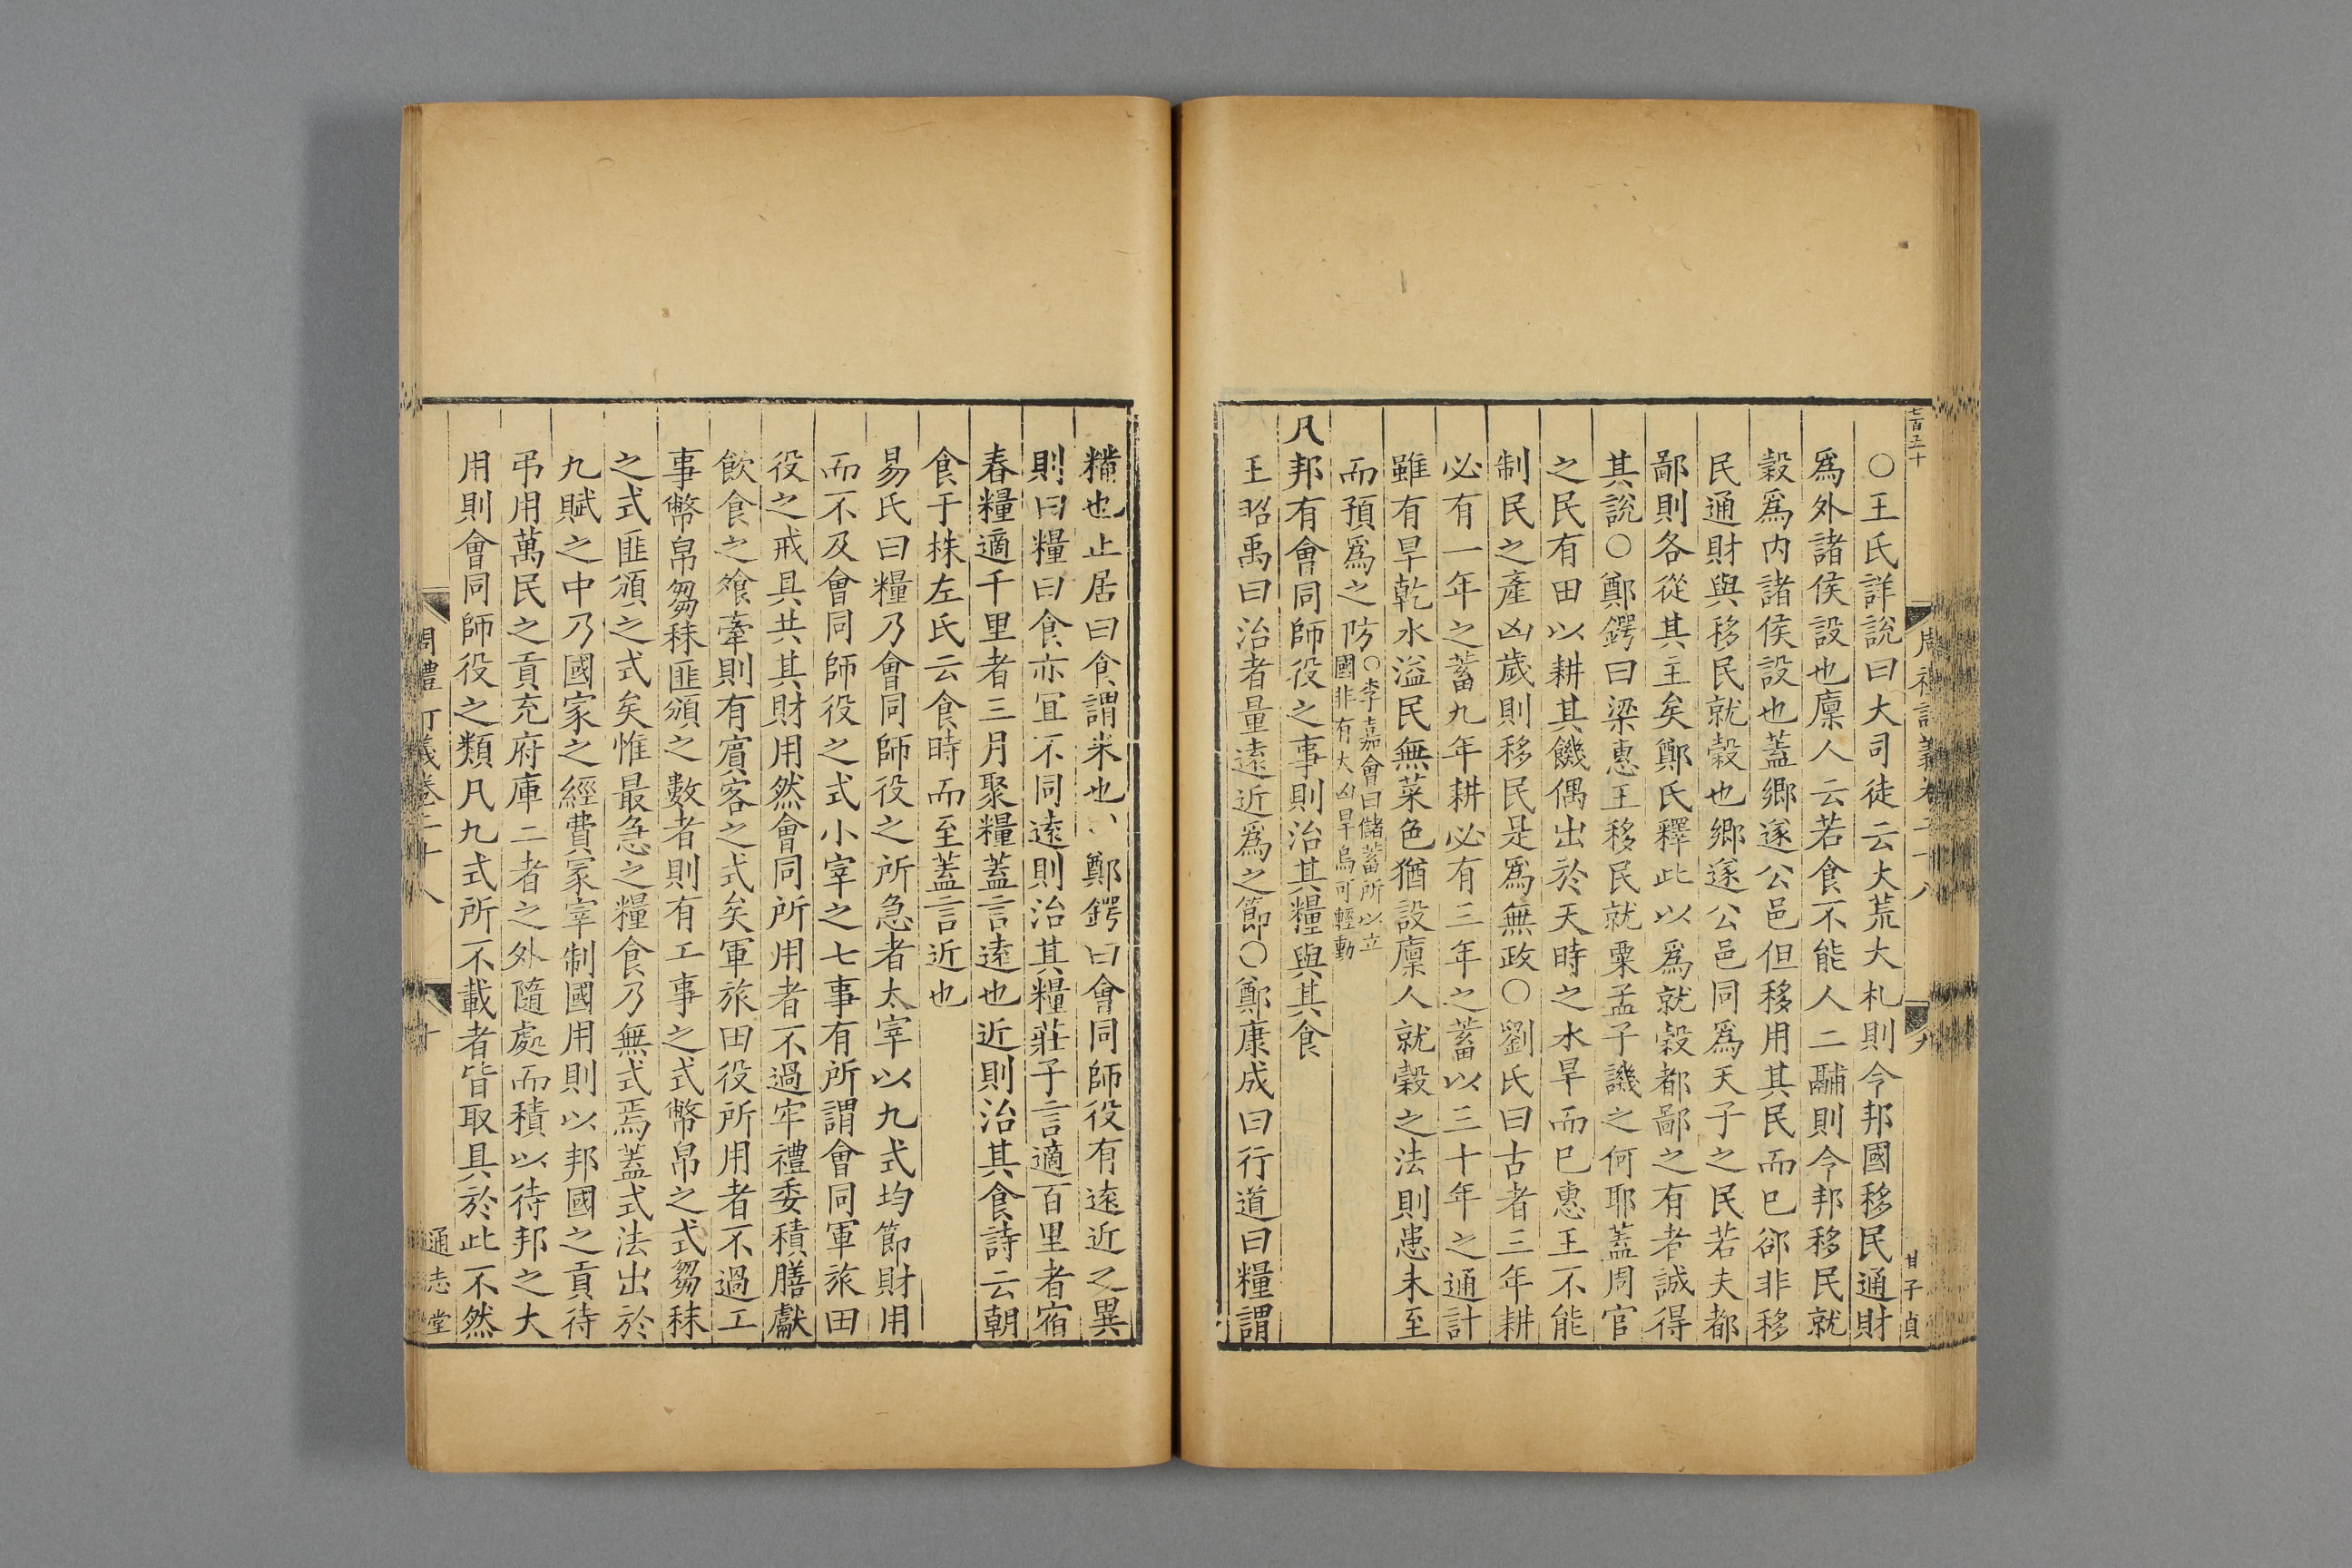 七百五十
周禮訂義卷二十八
九
甘子貞
○王氏詳說曰大司徒云大荒大札則令邦國移民通財
爲外諸侯設也廪人云若食不能人二鬴則令邦移民就
穀爲内諸侯設也蓋鄉遂公邑但移用其民而已郤非移
民通財與移民就穀也鄉遂公邑同爲天子之民若夫都
鄙則各從其主矣鄭氏釋此以爲就穀都鄙之有者誠得
其說○鄭鍔曰梁惠王移民就粟孟子譏之何耶蓋周官
之民有田以耕其饑偶出於天時之水旱而已惠王不能
制民之產凶歲則移民是爲無政○劉氏曰古者三年耕
必有一年之蓄九年耕必有三年之蓄以三十年之通計
雖有旱乾水溢民無菜色猶設廪人就穀之法則患未至
而預爲之防○李嘉會曰儲蓄所以立國非有大凶旱烏可輕動
凡邦有會同師役之事則治其糧與其食
王昭禹曰治者量遠近爲之節○鄭康成曰行道曰糧謂
糒也止居曰食謂米也、鄭鍔曰會同師役有遠近之異
則曰糧曰食亦宜不同遠則治其糧莊子言適百里者宿
舂糧適千里者三月聚糧蓋言遠也近則治其食詩云朝
食于株左氏云食時而至蓋言近也
易氏曰糧乃會同師役之所急者太宰以九式均節財用
而不及會同師役之式小宰之七事有所謂會同軍旅田
役之戒具共其財用然會同所用者不過牢禮委積膳獻
飲食之飧牽則有賓客之式矣軍旅田役所用者不過工
事幣帛芻秣匪頒之數者則有工事之式幣帛之式芻秣
之式匪頒之式矣惟最急之糧食乃無式焉蓋式法出於
九賦之中乃國家之經費冢宰制國用則以邦國之貢待
弔用萬民之貢充府庫二者之外隨處而積以待邦之大
用則會同師役之類凡九式所不載者皆取具於此不然
周禮訂義卷二十八
十
通志堂